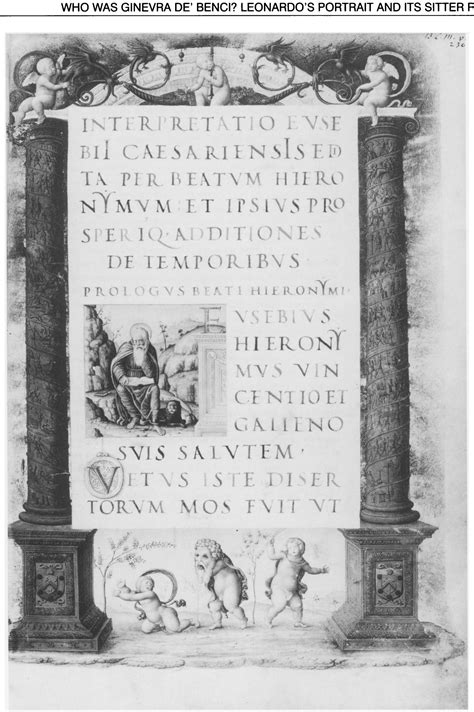 WHO WAS GINEVRA DE' BENCI? LEONARDO'S PORTRAIT AND ITS SITTER
INTERPRETATIO EVSE
BII CAESARIENSIS ED
TA PER BEATVM HIERO
NYMVM: ET IPSIVS PRO
SPERIQ· ADDITIONES
DE TEMPORIBVS·
PROLOGVS BEATI HIERONYMI·
EVSEBIVS
HIERONY
MVS VIN
CENTIO ET
GALIENO
SVIS SALVTEM·
VETVS ISTE DISER
TORVM MOS FVIT VT